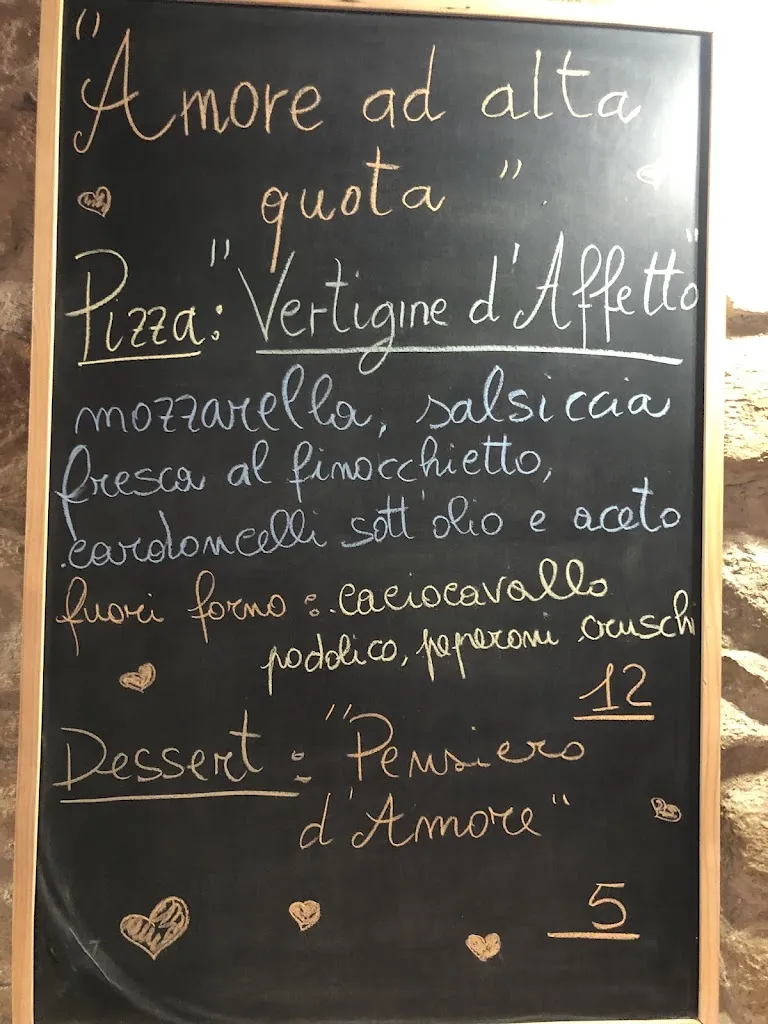 "Amore ad alta
quota"
Pizza: "Vertigine d'Affetto"
mozzarella, salsiccia
fresca al finocchietto,
cardoncelli sott'olio e aceto
fuori forno: caciocavallo
podolico, peperoni cruschi
12
Dessert: "Pensiero
d'Amore"
5